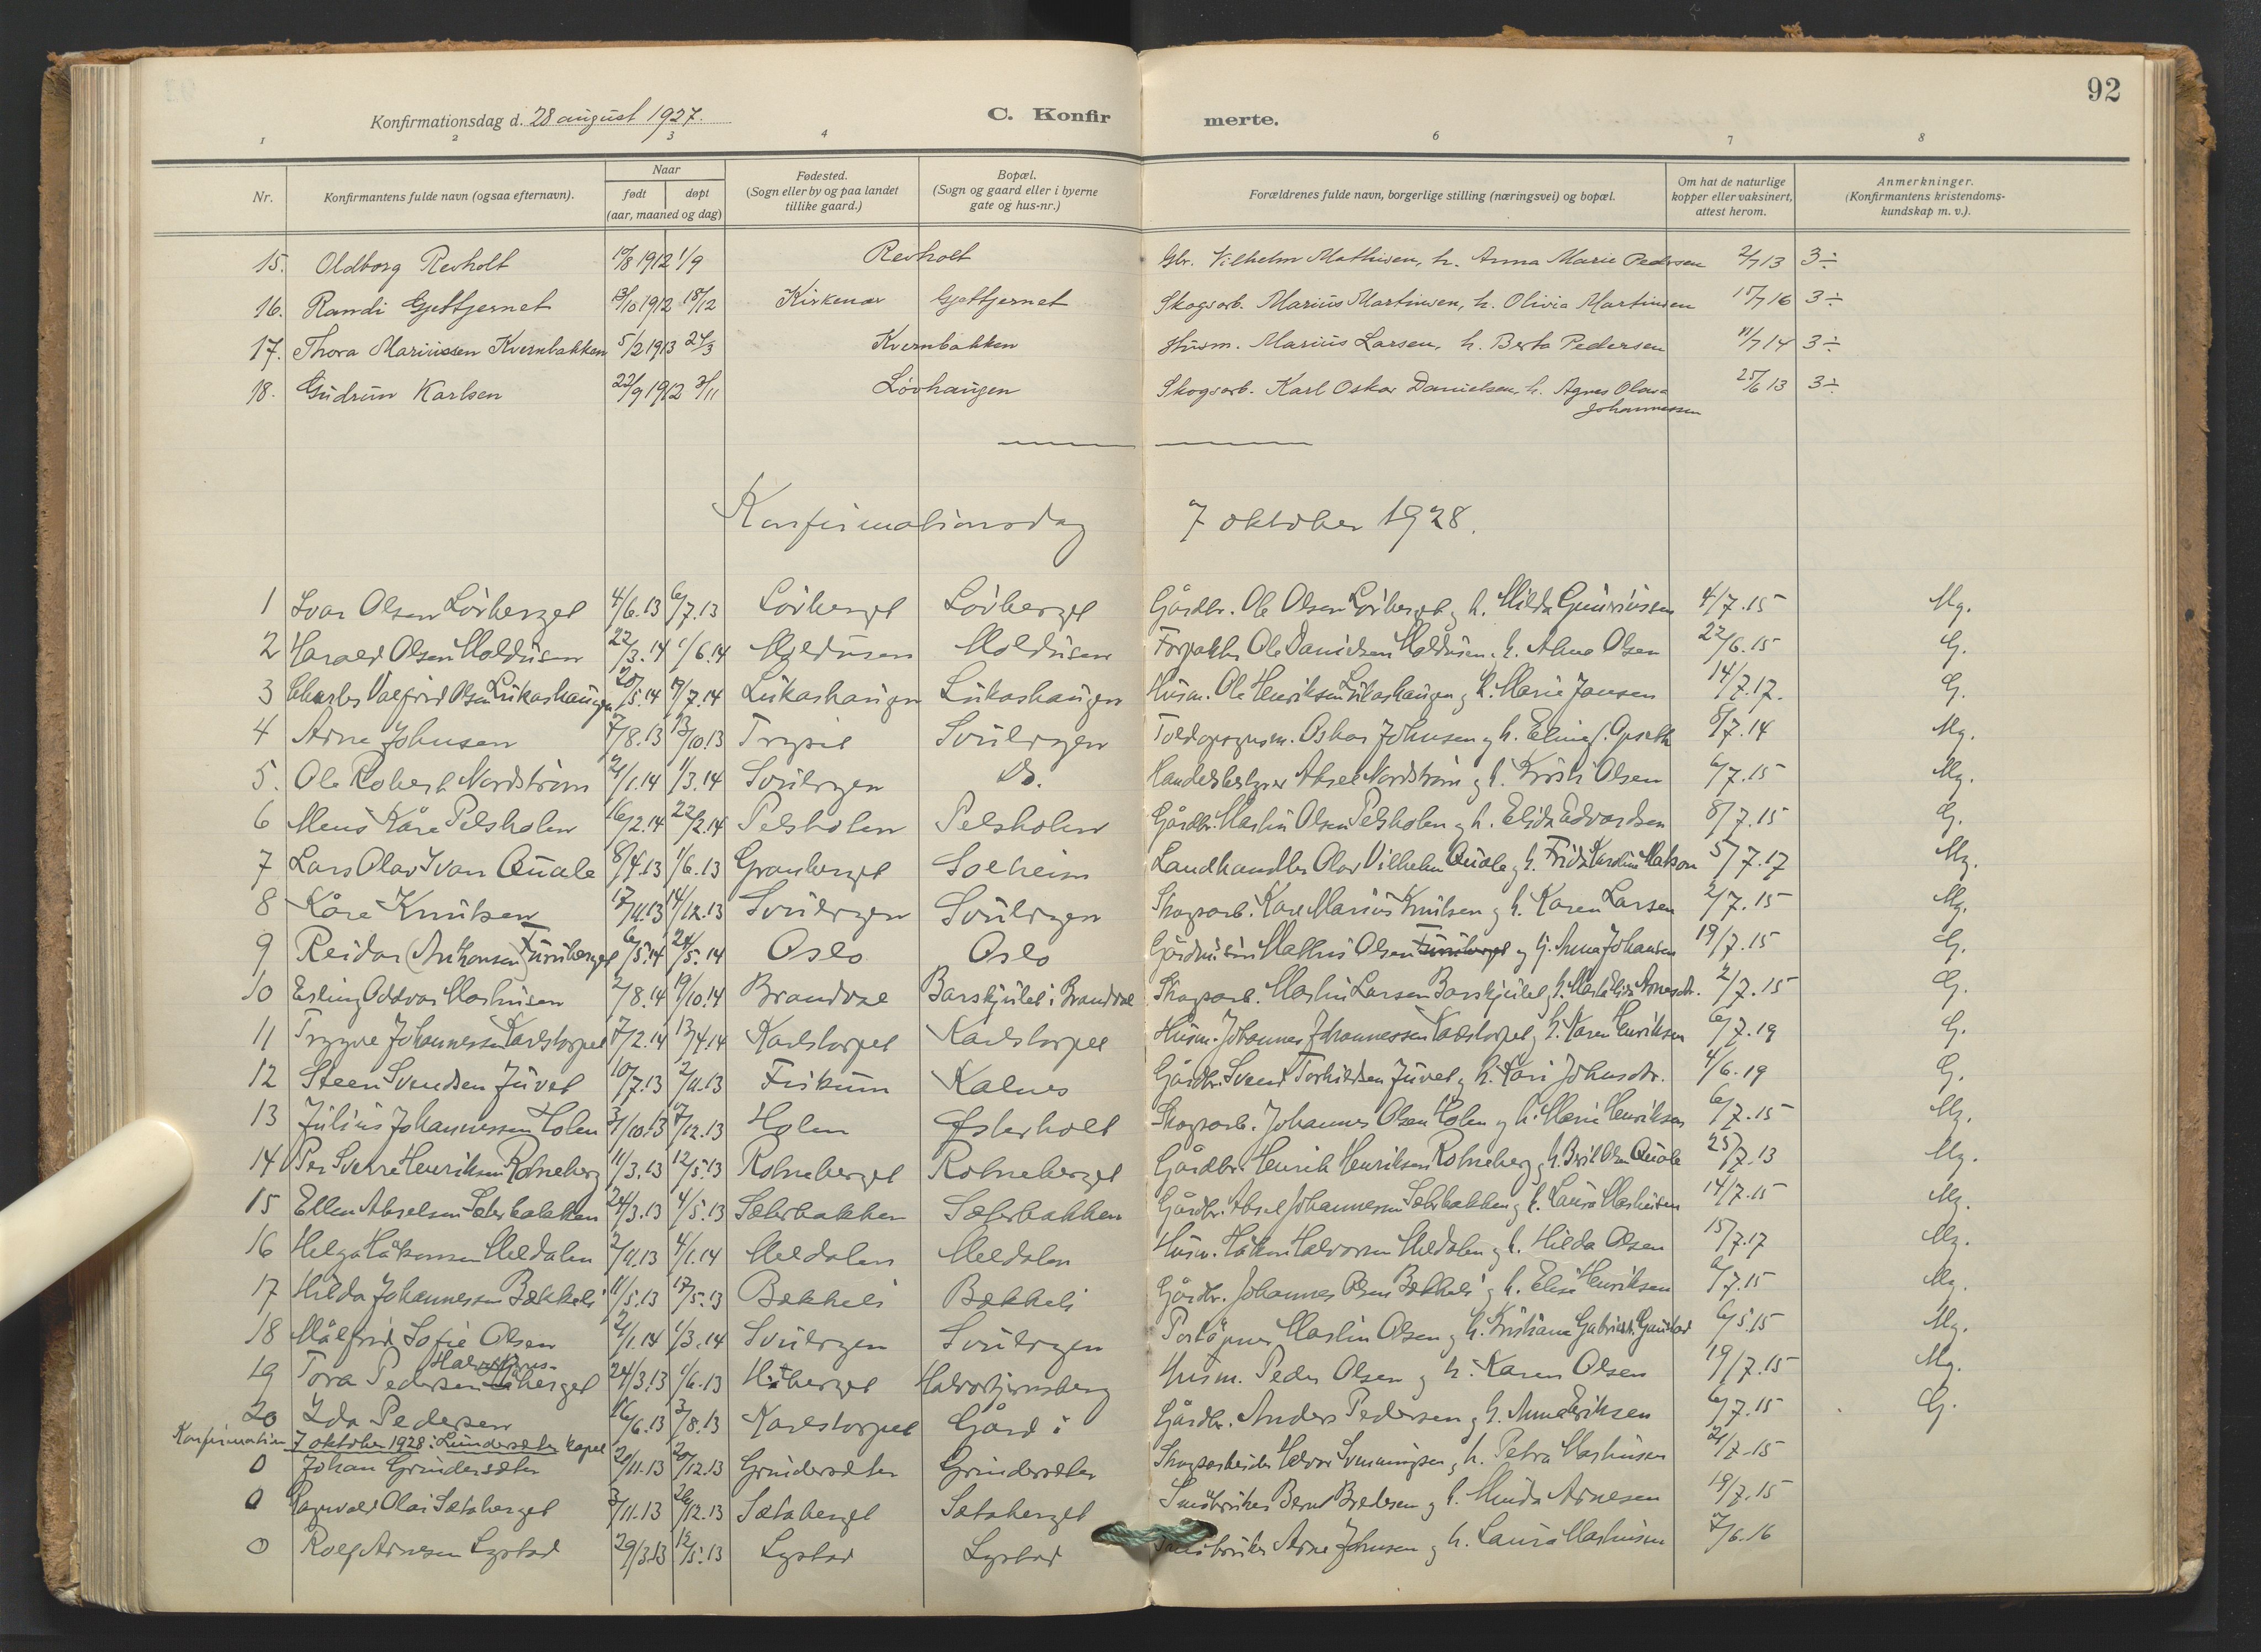 92
Konfirmationsdag d. 28 august 1927.
C. Konfirmerte.
1 2 3 4 6 7 8
Nr. Konfirmantens fulde navn (ogsaa efternavn). Naar født døpt (aar, maaned og dag) Fødested. (Sogn eller by og paa landet tillike gaard.) Bopæl. (Sogn og gaard eller i byerne gate og hus-nr.) Forældrenes fulde navn, borgerlige stilling (næringsvei) og bopæl. Om hat de naturlige kopper eller vaksinert, attest herom. Anmerkninger. (Konfirmantens kristendomskundskap m. v.).
15. Oldborg Revholt 1912 1/9 Revholt Gbr. Vilhelm Mathisen, h. Anna Marie Pedersen 2/7 13 3÷
16. Randi Gjettjernet 13/10 1912 18/12 Kirkenær Gjettjernet Skogsarb. Marius Martinsen, h. Olivia Martinsen 15/7 16 3÷
17. Thora Mariussen Kvernbakken 5/2 1913 24/3 Kvernbakken Husm. Marius Larsen, h. Berta Pedersen 11/7 14 3÷
18. Gudrun Karlsen 22/9 1912 3/11 Løvhaugen Skogsarb. Karl Oskar Danielsen, h. Agnes Olava Johannessen 25/6 13 3÷
Konfirmationsdag 7 oktober 1928.
1 Ivar Olsen Lövberget 4/6.13 6/7.13 Lövberget Lövberget Gårdbr. Ole Olsen Lövberget og h. Milda Gunriussen 4/7.15 Mg.
2 Harald Olsen Moldusen 22/3.14 1/6.14 Moldusen Moldusen Forpakter Ole Danielsen Moldusen, h. Olsen 22/6.15 G.
3 Charles Valfrid Olsen Lukashaugen 20/5.14 19/7.14 Lukashaugen Lukashaugen Husm. Ole Henriksen Lukashaugen og h. Marie Jansen 14/7.17. G.
4 Arne Johnsen 7/8.13 13/10.13 Trysil Svulrygen Toldopsynsm. Oskar Johnsen og h. Eline f. Opseth 8/7.14 Mg.
5. Ole Robert Nordström 21/1.14 1/3.14 Svulrygen Do. Handelsbestyrer Aksel Nordström og h. Kristi Olsen 6/7.15 Mg.
6 Kåre Pelsholen 16/2.14 22/2.14 Pelsholen Pelsholen Gårdbr. Martin Olsen Pelsholen og h. Elida Edvardsen 8/7.15 G.
7 Lars Olav Ivan Quale 8/4.13 1/6.13 Granberget Solheim Landhandler Olav Vilhelm Quale og h. Frida Karoline 5/7.17 Mg.
8 Kåre Knutsen 17/11.13 14/12.13 Svulrygen Svulrygen Skogsarb. Karl Marius Knutsen og h. Karen Larsen 2/7.15 Mg.
9 Reidar (Anthonsen) Furuberget 6/5.14 24/5.14 Oslo Oslo Mathis Olsen Furuberget og Anna Johansen 19/7.15 G.
10 Erling Oddvar Martinsen 2/8.14 19/10.14 Brandval Barskjulet i Brandval Skogsarb. Martin Larsen Barskjulet, h. Marta 2/7.15 G.
11 Trygve Johannessen Karlstorpet 17/2.14 13/4.14 Karlstorpet Karlstorpet Husm. Johannes Johannessen Karlstorpet, h. Karen Henriksen 6/7.19 G.
12 Steen Svendsen Juvet 10/7.13 2/11.13 Fiskum Kalnes Gårdbr. Svend Torkildsen Juvet og h. Kari Johnsdtr. 4/6.19 G.
13 Julius Johannessen Holen 3/10.13 7/12.13 Holen Østerholt Skogsarb. Johannes Olsen Holen og h. Marie Henriksen 6/7.15 Mg.
14 Per Sverre Henriksen Rotneberg 11/3.13 12/5.13 Rotneberget Rotneberget Gårdbr. Henrik Henriksen Rotneberg og h. Berit Olsen Quale 25/7.13 Mg.
15 Ellen Akselsen Sæterbakken 24/3.13 4/5.13 Sæterbakken Sæterbakken Gårdbr. Aksel Johannessen Sæterbakken og h. Laura Martinsen 14/7.15 Mg.
16 Helga Håkonsen Meldalen 2/11.13 4/1.14 Meldalen Meldalen Husm. Håkon Halvorsen Meldalen og h. Hilda Olsen 15/7.17 Mg.
17 Hilda Johannessen Bækkeli 11/5.13 17/5.13 Bækkeli Bækkeli Gårdbr. Johannes Olsen Bækkeli og h. Elise Henriksen 2/7.15 Mg.
18 Målfrid Sofie Olsen 2/1.14 1/3.14 Svulrygen Svulrygen Poståpner Martin Olsen og h. Kristiane Gaustad 6/5.15 Mg.
19 Tora Pedersen berget 24/3.13 1/6.13 berget Halvortjernsberg Husm. Peder Olsen og h. Karen Olsen 19/7.15 Mg.
20 Ida Pedersen 16/6.13 3/8.13 Karlstorpet Gård i Gårdbr. Anders Pedersen og h. Anna Eriksen 6/7.15 G.
Konfirmation 7 oktober 1928 i Lundersæter kapel
0 Johan Grindersæter 20/11.13 20/12.13 Grindersæter Grindersæter Skogsarbeider Halvor Svenningsen og h. Petra Martinsen 21/7.15
0 Ragnvald Olai Sætaberget 3/11.13 26/12.13 Sætaberget Sætaberget Småbruker Bernt Bredesen og h. Minda Arnesen 19/7.15
0 Rolf Arnesen Lystad 29/3.13 12/5.13 Lystad Lystad Småbruker Arne Johnsen og h. Laura Martinsen 7/6.16